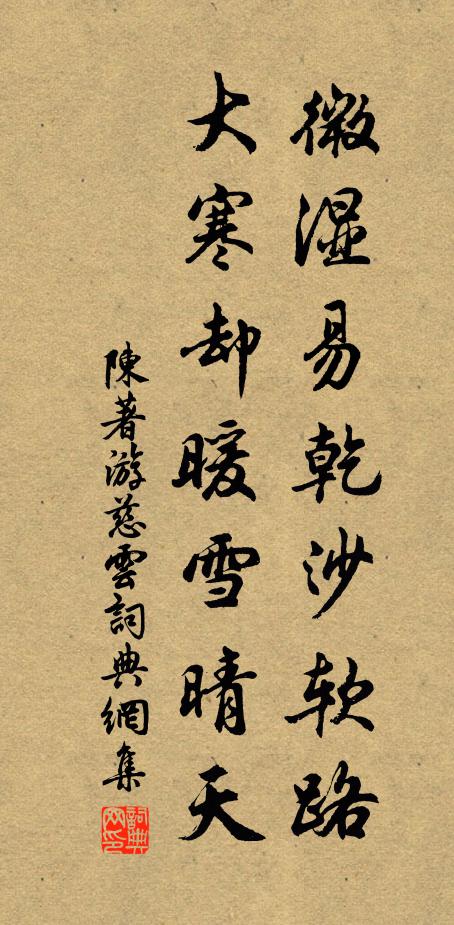 微湿易乾沙软路
大寒却暖雪晴天
陳著游慈雲詞典網集
詞典網印